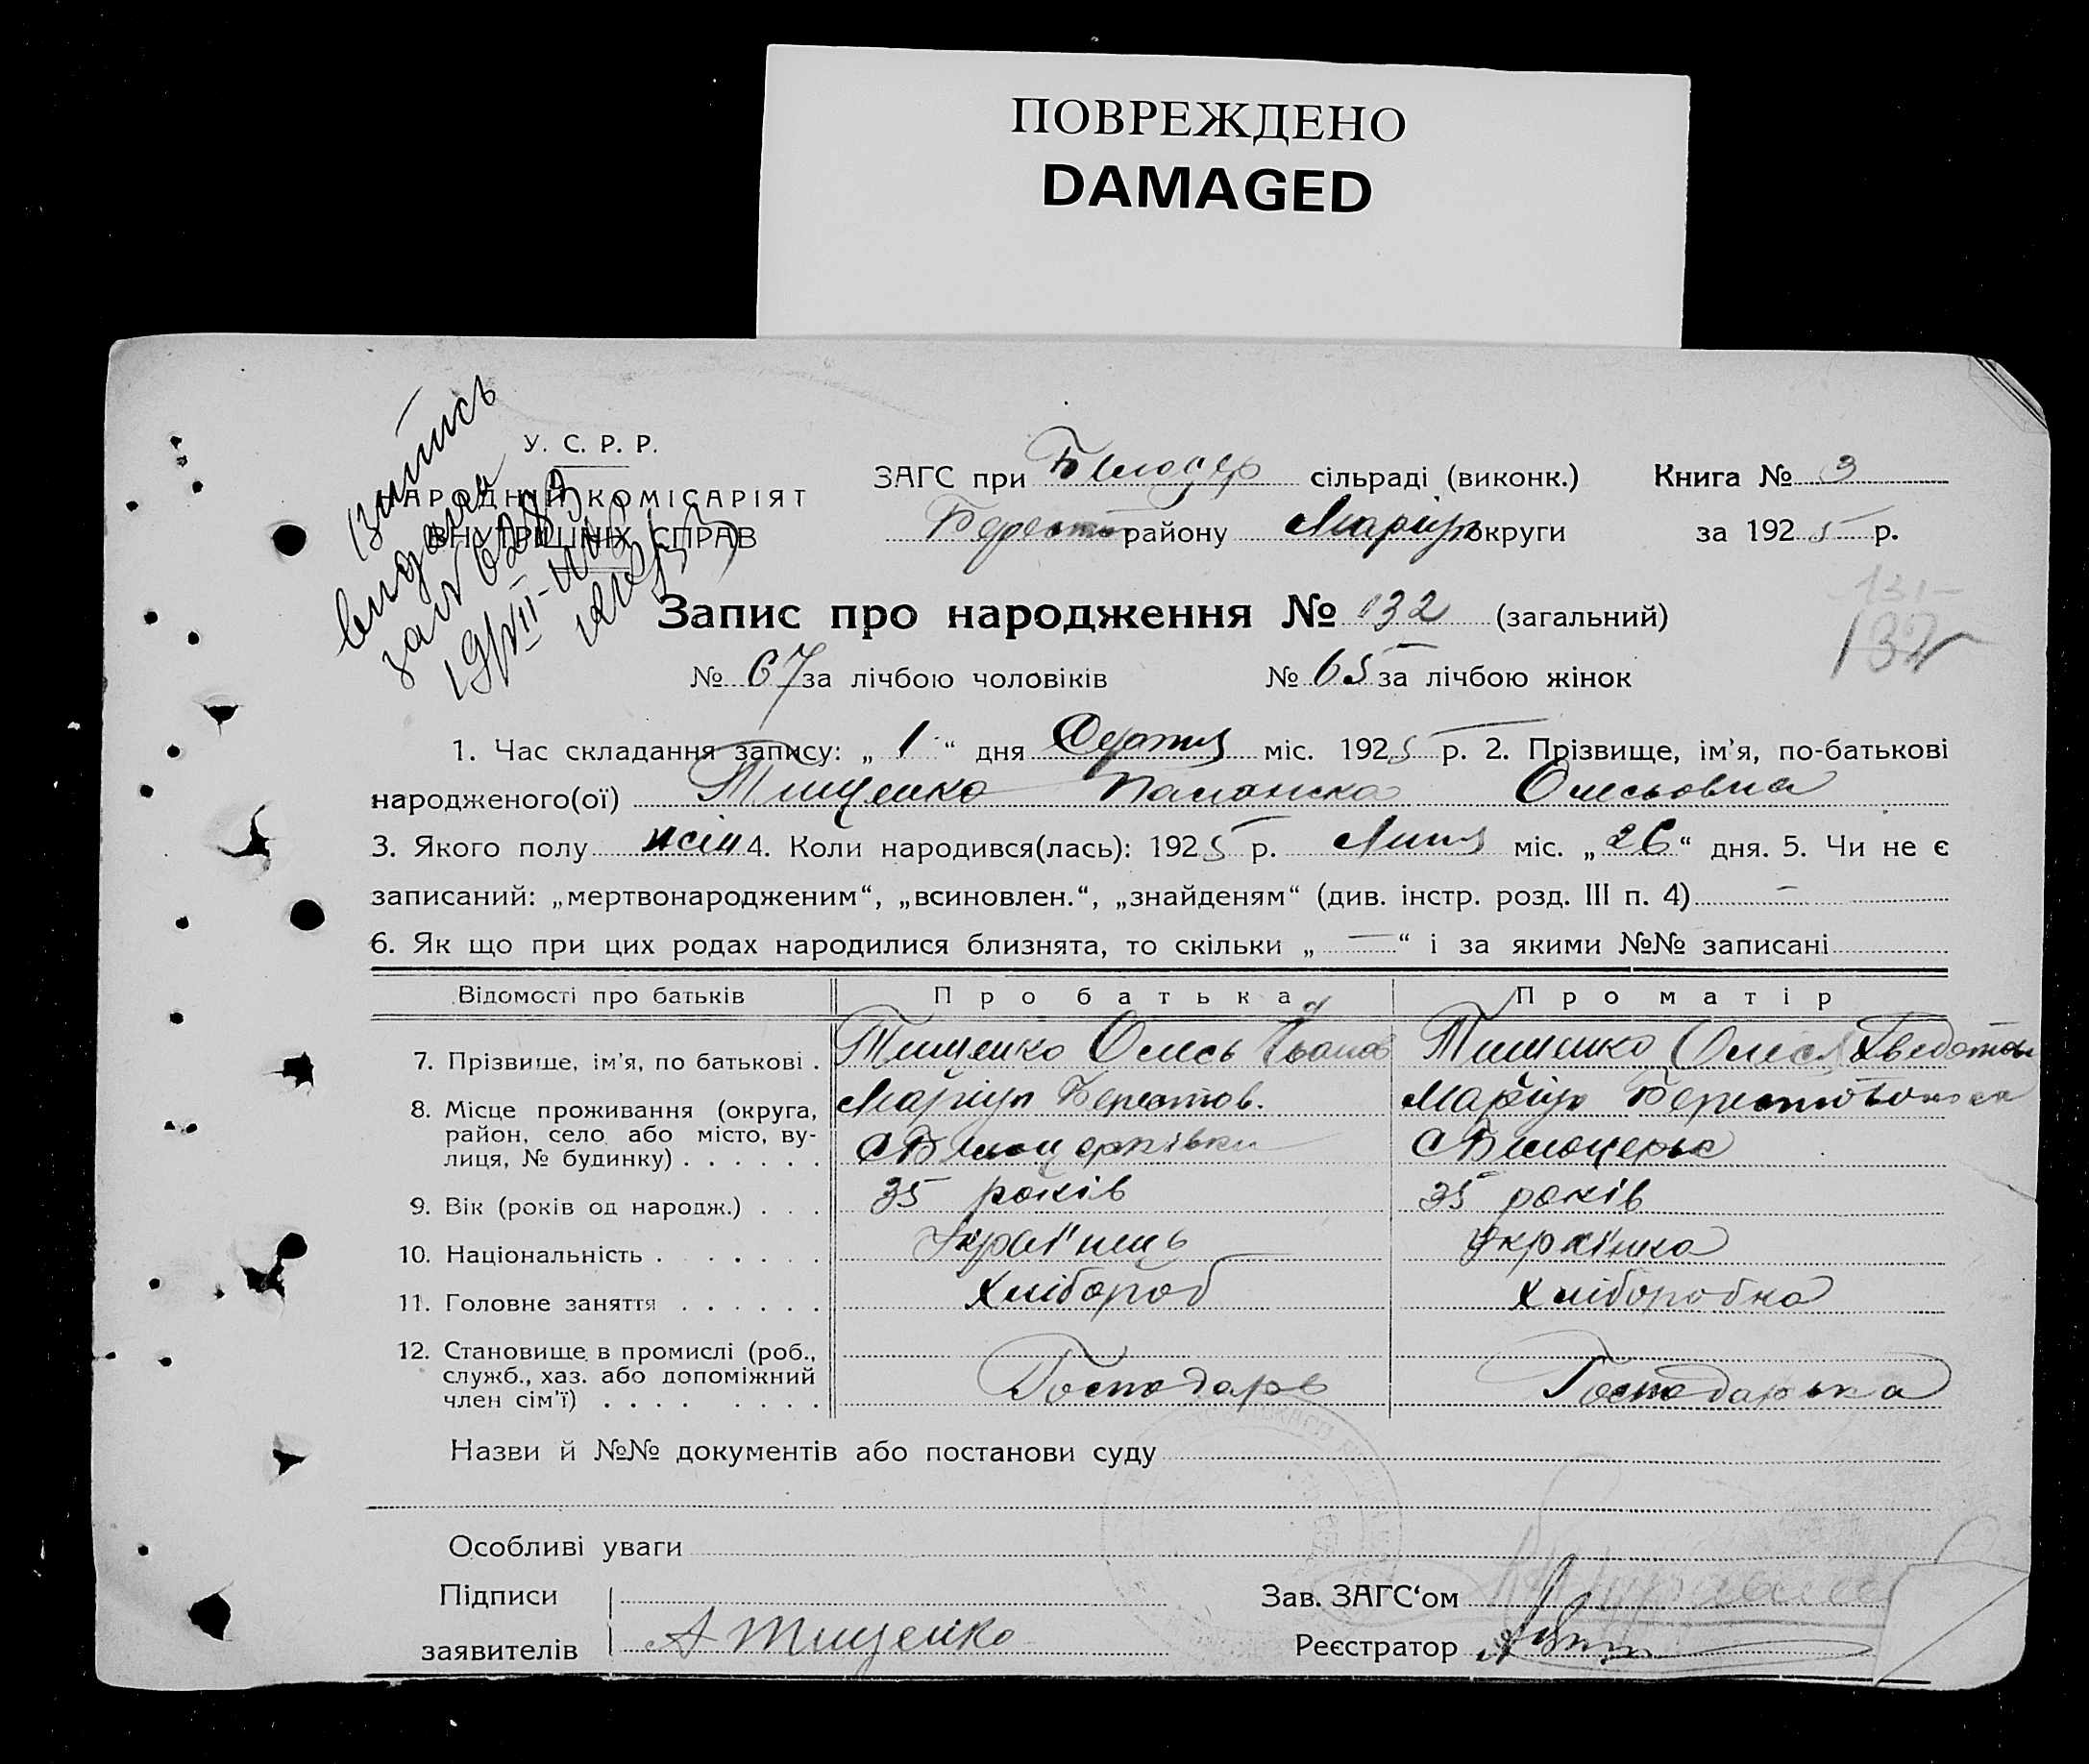 ПОВРЕЖДЕНО
DAMAGED
У. С. Р. Р.
АРОДНІЙ КОМІСАРІЯТ
ВНУТРІШНІХ СПРАВ
запись
видана
ЗАГС при Білоцер сільраді (виконк.) Книга № 3
Берестов району Маріуп округи за 1925 р.
Запис про народження № 132 (загальний)
131
132
№ 67 за лічбою чоловіків № 65 за лічбою жінок
1. Час складання запису: „ 1 “ дня Серпня міс. 1925 р. 2. Прізвище, ім’я, по-батькові
народженого(ої) Тищенко Палажка Олесьовна
3. Якого полу жін 4. Коли народився(лась): 1925 р. Липня міс. „ 26 “ дня. 5. Чи не є
записаний: „мертвонародженим“, „всиновлен.“, „знайденям“ (див. інстр. розд. III п. 4) —
6. Як що при цих родах народилися близнята, то скільки „ — “ і за якими №№ записані
Відомості про батьків Про батька Про матір
7. Прізвище, ім’я, по батькові . Тищенко Олесь Іванов Тищенко Олеся Хведотов
8. Місце проживання (округа, Маріуп Берестов. Маріуп Берестов
район, село або місто, ву- С Білоцерківки С Білоцерк
лиця, № будинку) . . . . . .
9. Вік (років од народж.) . . . 35 років 35 років
10. Національність . . . . . Українець Українка
11. Головне заняття . . . . . . Хлібороб Хліборобка
12. Становище в промислі (роб.,
служб., хаз. або допоміжний Господарь Господарька
член сім’ї) . . . . . . . .
Назви й №№ документів або постанови суду
Особливі уваги
Підписи Зав. ЗАГС‘ом
заявителів А Тищенко Реєстратор